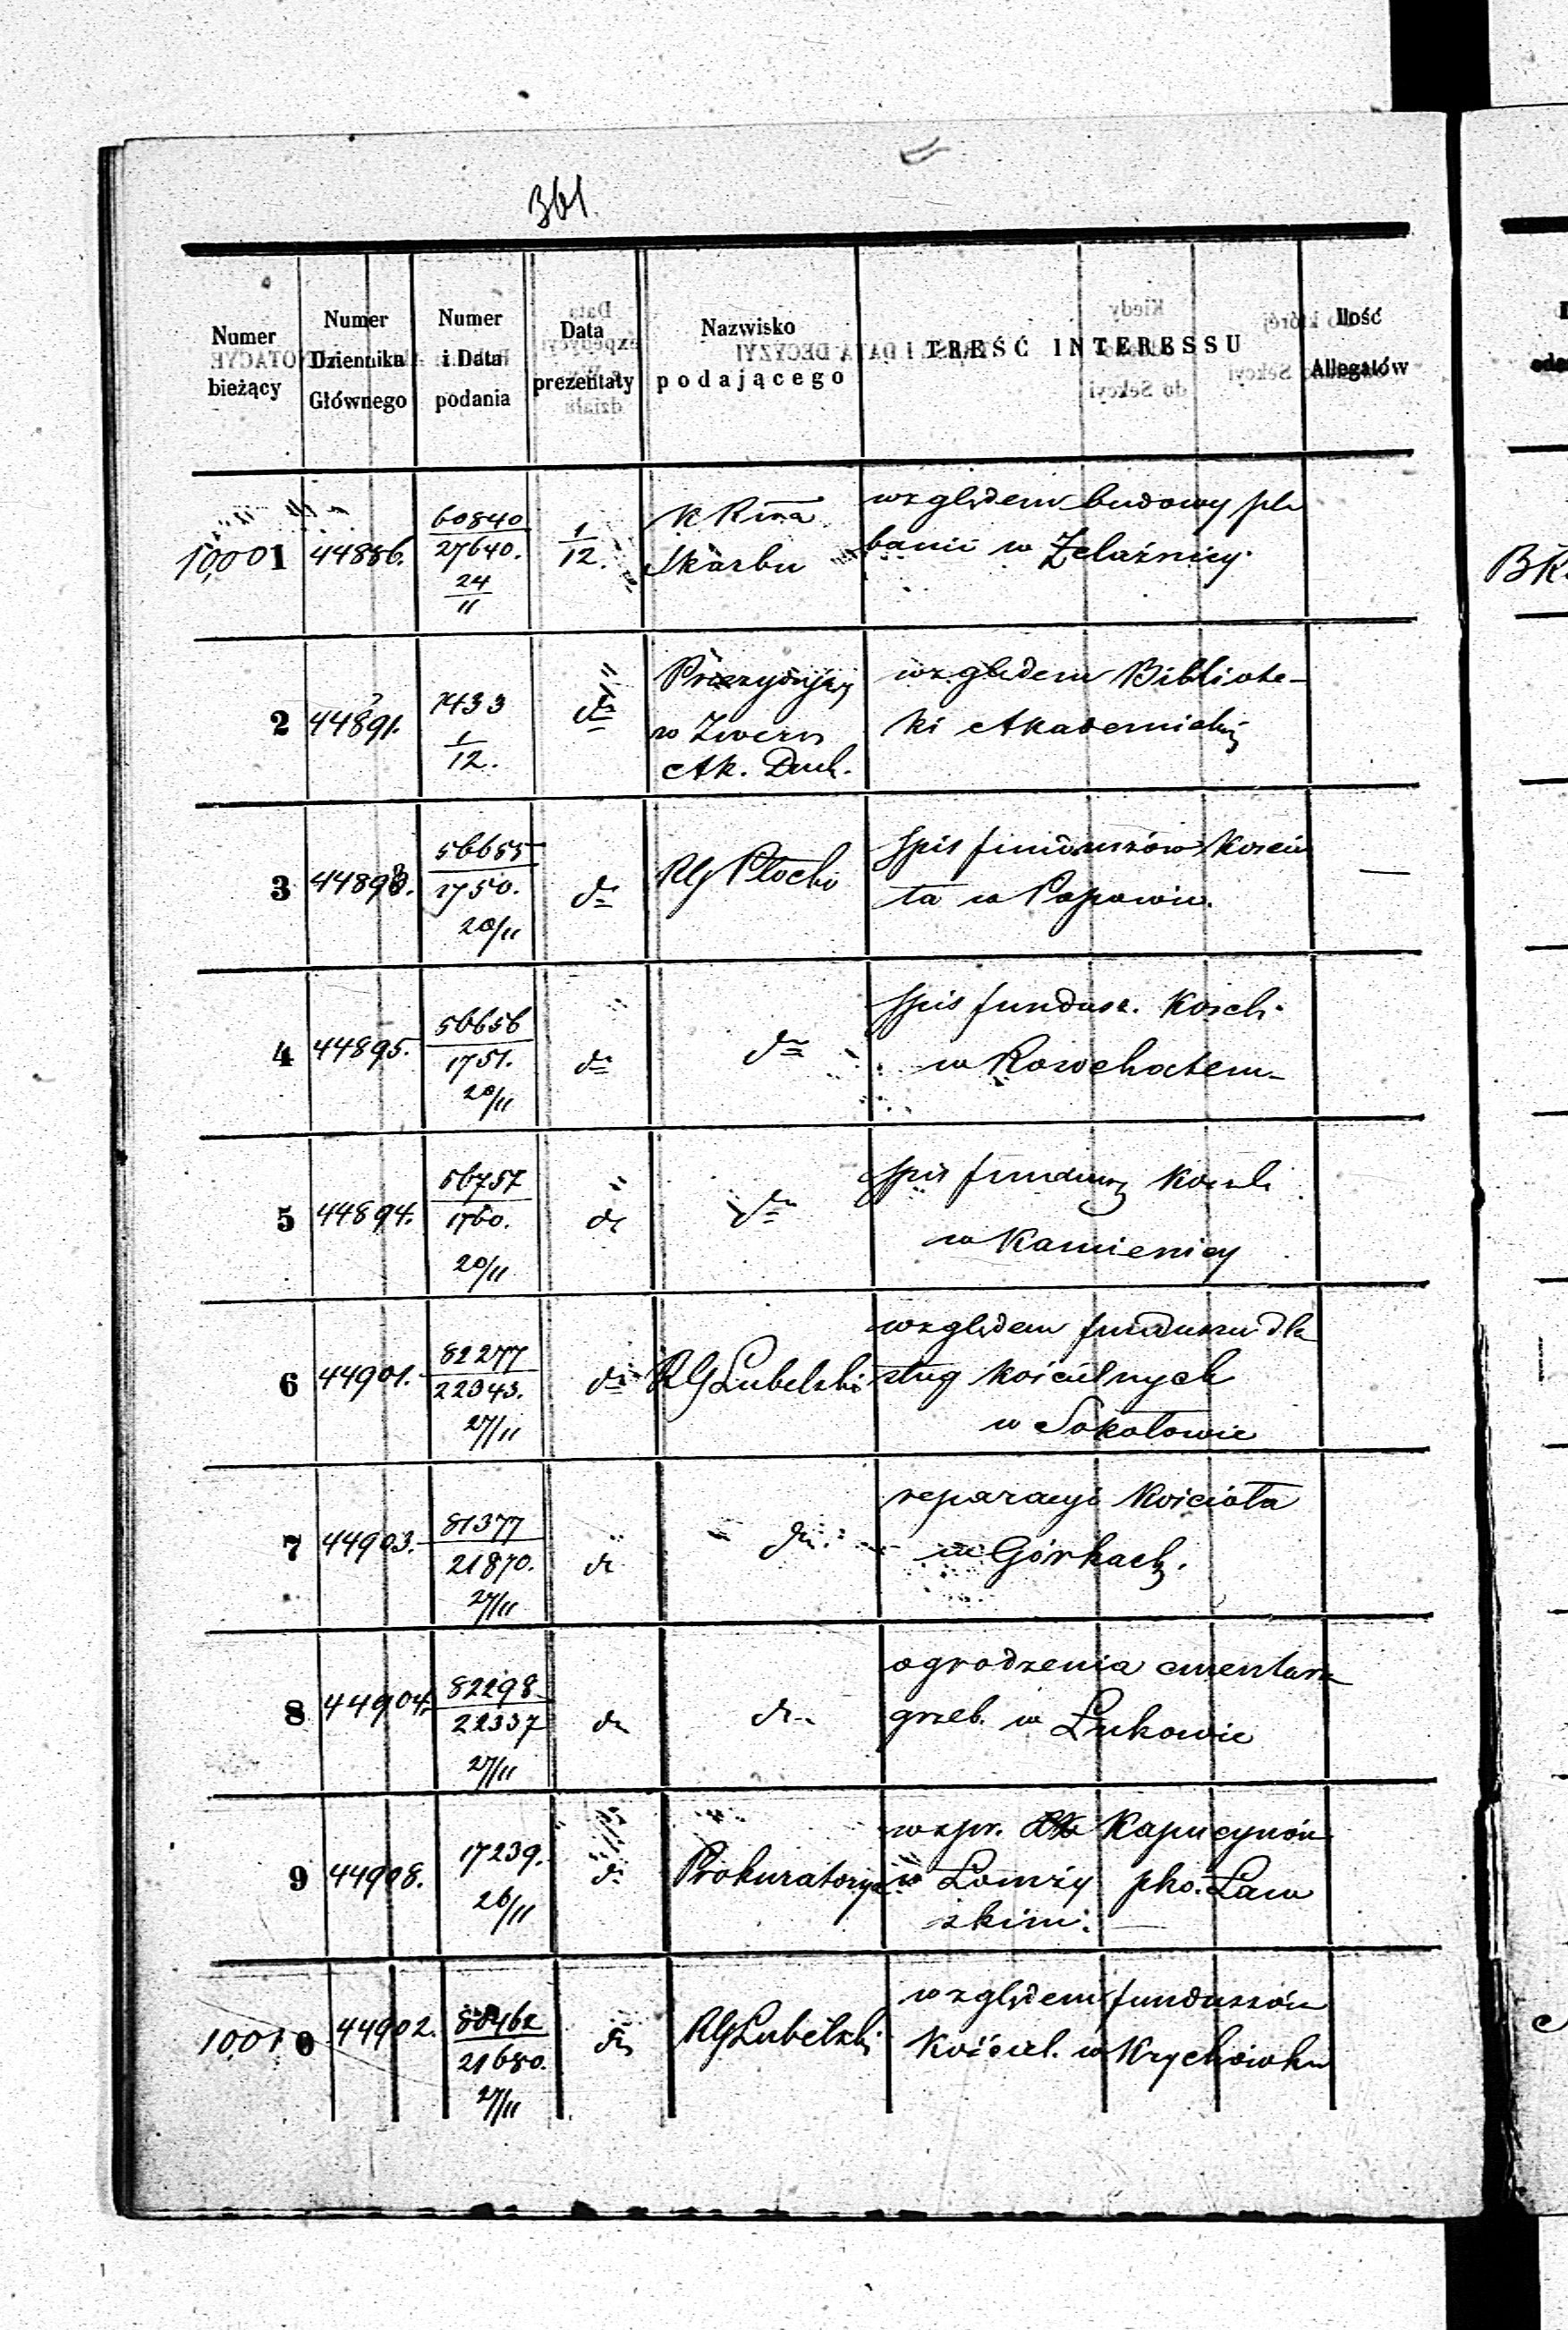 361.
Numer bieżący
Numer Dziennika Głównego
Numer i Data podania
Data prezentaty
Nazwisko podającego
TREŚĆ INTERESSU
Ilość Allegatów
10,001 44886. 60840 / 27640. 24/11 1/12. K Rzą Skarbu
względem budowy ple
banii w Żelaźnicy.
2 44891. 7433 1/12. do
w Zwerz
Ak. Duch.
względem Bibliote-
ki Akademickiej
3 44893. 56655 / 1750. 20/11 do RG Płocki
spis funduszów kościo
ła w Popowie. —
4 44895. 56656 / 1751. 20/11 do do
spis fundusz. Kości.
w Rosochatem
5 44894. 56757 / 1760. 20/11 do do
spis fundusz kości
w Kamienicy
6 44901. 82277 / 22343. 27/11 do RG Lubelski
względem funduszu dla
sług kościelnych
w Sokołowie
7 44903. 81377 / 21870. 27/11 do do
reparacyi kościoła
w Górkach.
8 44904. 82298 / 22337 27/11 do do
ogrodzenia cmentarza
grzeb. w Łukowie
9 44908. 17239. 26/11 do Prokuratorya
w spr. Kapucynów
w Łomży pko. Law
skim.
10010 44902. 80462 / 21680. 27/11 do RG Lubelski
względem funduszów
Kościel. w Krychówku